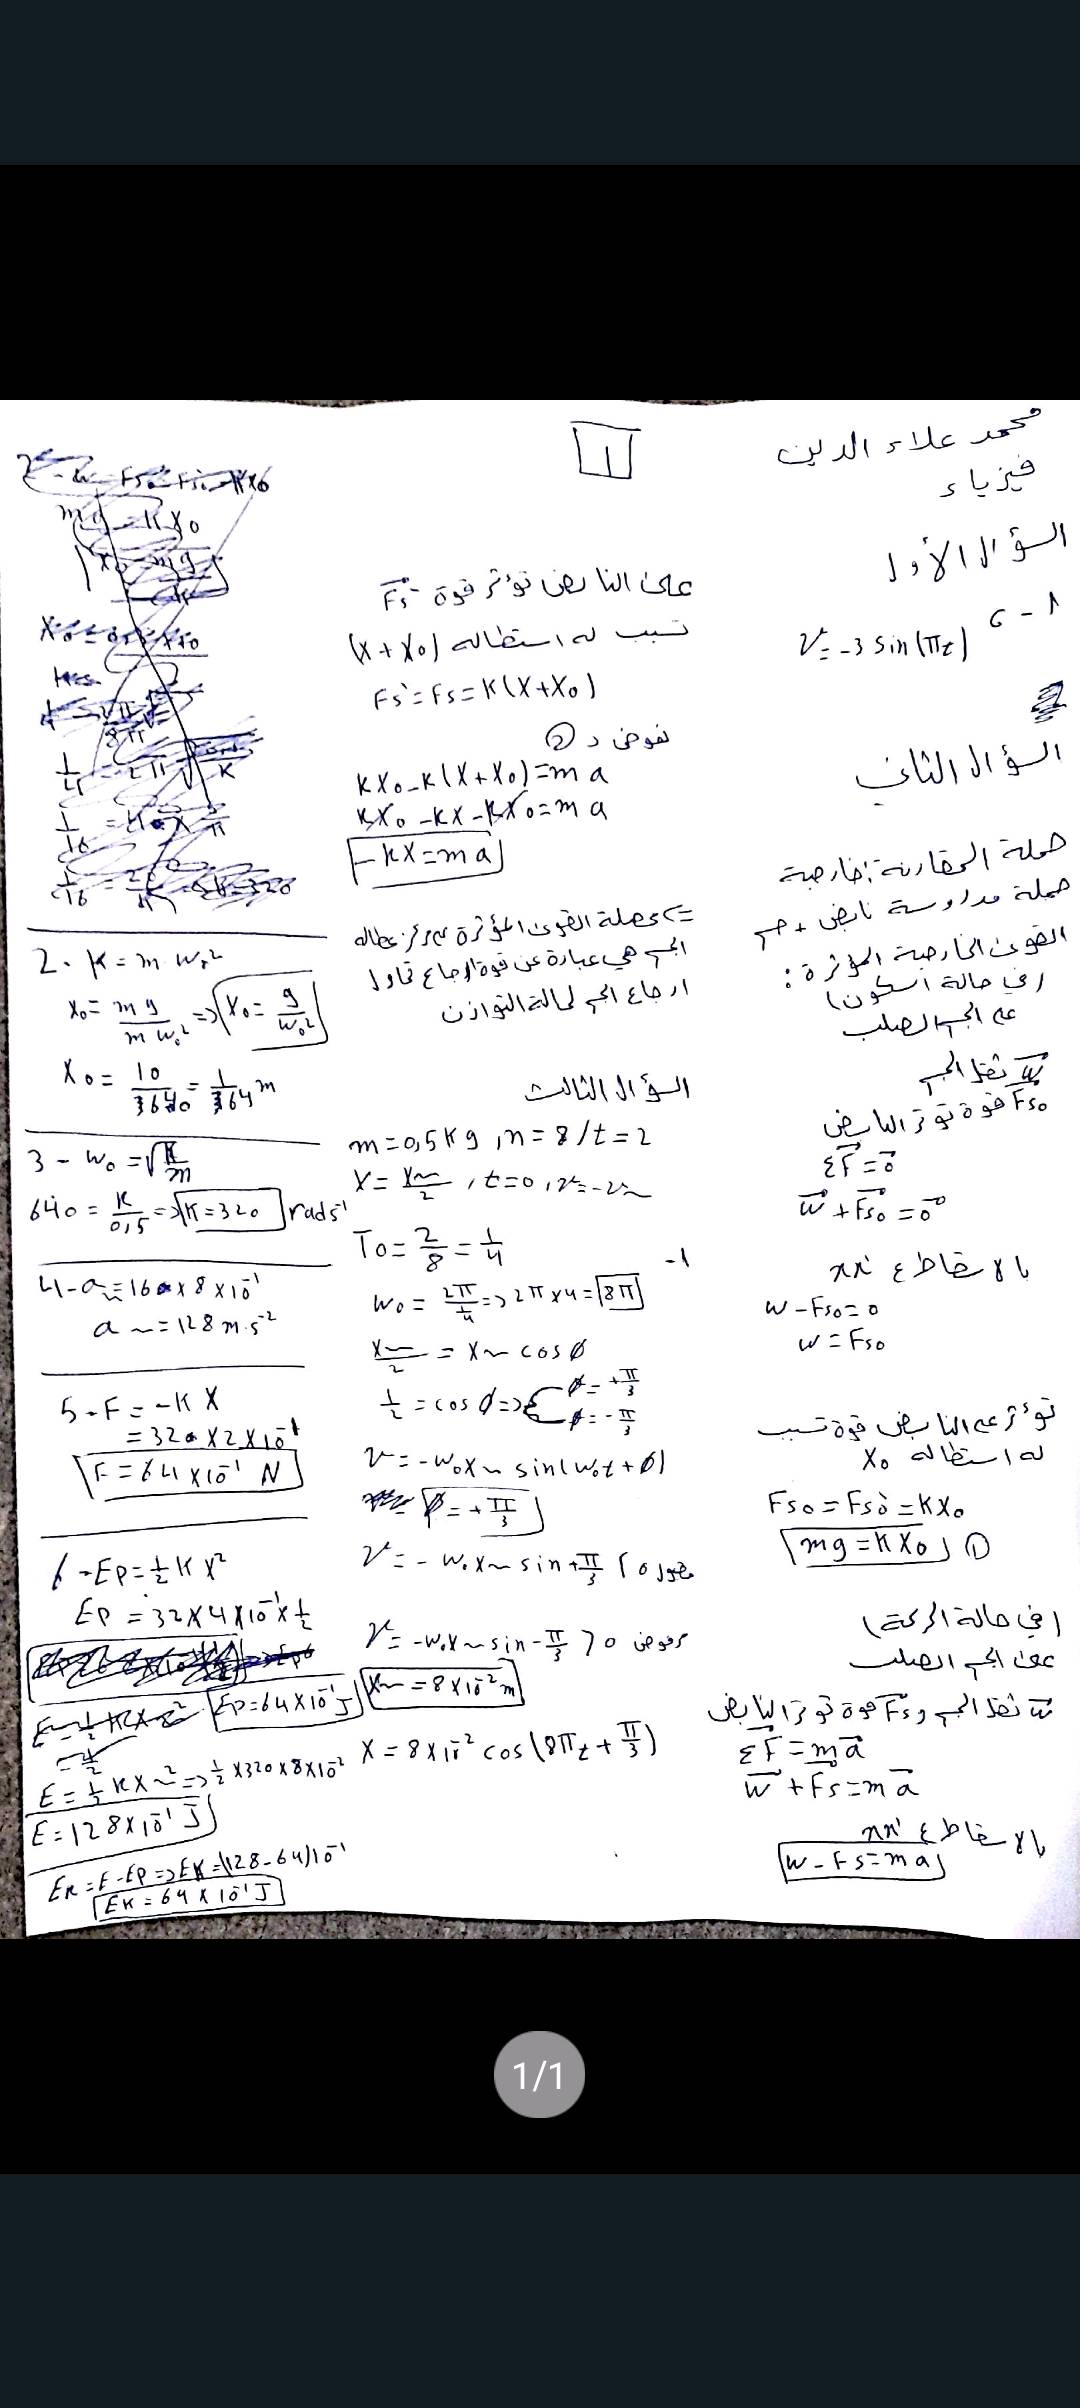 محمد علاء الدين
فيزياء
1
السؤال الأول
1 - c
v = -3 sin(πt)
السؤال الثاني
جملة المقارنة: خارجية
جملة مدروسة نابض + جسم
القوى الخارجية المؤثرة:
(في حالة السكون)
على الجسم الصلب
W ثقل الجسم
Fs₀ قوة توتر النابض
ΣF = 0
W + Fs₀ = 0
بالاسقاط ع xx'
W - Fs₀ = 0
W = Fs₀
تؤثر على النابض قوة تسبب
له استطالة x₀
Fs₀ = Fs₀' = K x₀
mg = K x₀ ①
(في حالة الحركة)
على الجسم الصلب
W ثقل الجسم و Fs قوة توتر النابض
ΣF = ma
W + Fs = ma
بالاسقاط ع xx'
W - Fs = ma
على النابض تؤثر قوة Fs'
تسبب له استطالة (x + x₀)
Fs' = Fs = K(x + x₀)
نعوض د ②
Kx₀ - K(x + x₀) = ma
Kx₀ - Kx - Kx₀ = ma
-Kx = ma
=> محصلة القوى المؤثرة بمركز عطالة
الجسم هي عبارة عن قوة ارجاع تحاول
ارجاع الجسم لحالة التوازن
السؤال الثالث
m = 0,5 Kg , n = 8 / t = 2
x = x~/2 , t = 0 , v = -v~
T₀ = 2/8 = 1/4
-1
w₀ = 2π/(1/4) => 2π × 4 = 8π
x~/2 = x~ cos ϕ
1/2 = cos ϕ => { ϕ = +π/3
ϕ = -π/3
v = -w₀x~ sin(w₀t + ϕ)
ϕ = +π/3
v = -w₀x~ sin +π/3 < 0 مقبول
v = -w₀x~ sin -π/3 > 0 مرفوض
x~ = 8 × 10⁻² m
x = 8 × 10⁻² cos(8πt + π/3)
2. K = m w₀²
x₀ = mg/(m w₀²) => x₀ = g/w₀²
x₀ = 10/640 = 1/64 m
3 - w₀ = √(K/m)
640 = K/0,5 => K = 320 rad s⁻¹
4 - a~ = 160 × 8 × 10⁻¹
a~ = 128 m.s⁻²
5 - F = -Kx
= 320 × 2 × 10⁻¹
F = 64 × 10⁻¹ N
6 - Ep = 1/2 K x²
Ep = 32 × 4 × 10⁻¹ × 1/2
Ep = 64 × 10⁻¹ J
E = 1/2 K x~² => 1/2 × 320 × 8 × 10⁻²
E = 128 × 10⁻¹ J
EK = E - Ep => EK = (128 - 64)10⁻¹
EK = 64 × 10⁻¹ J
1/1